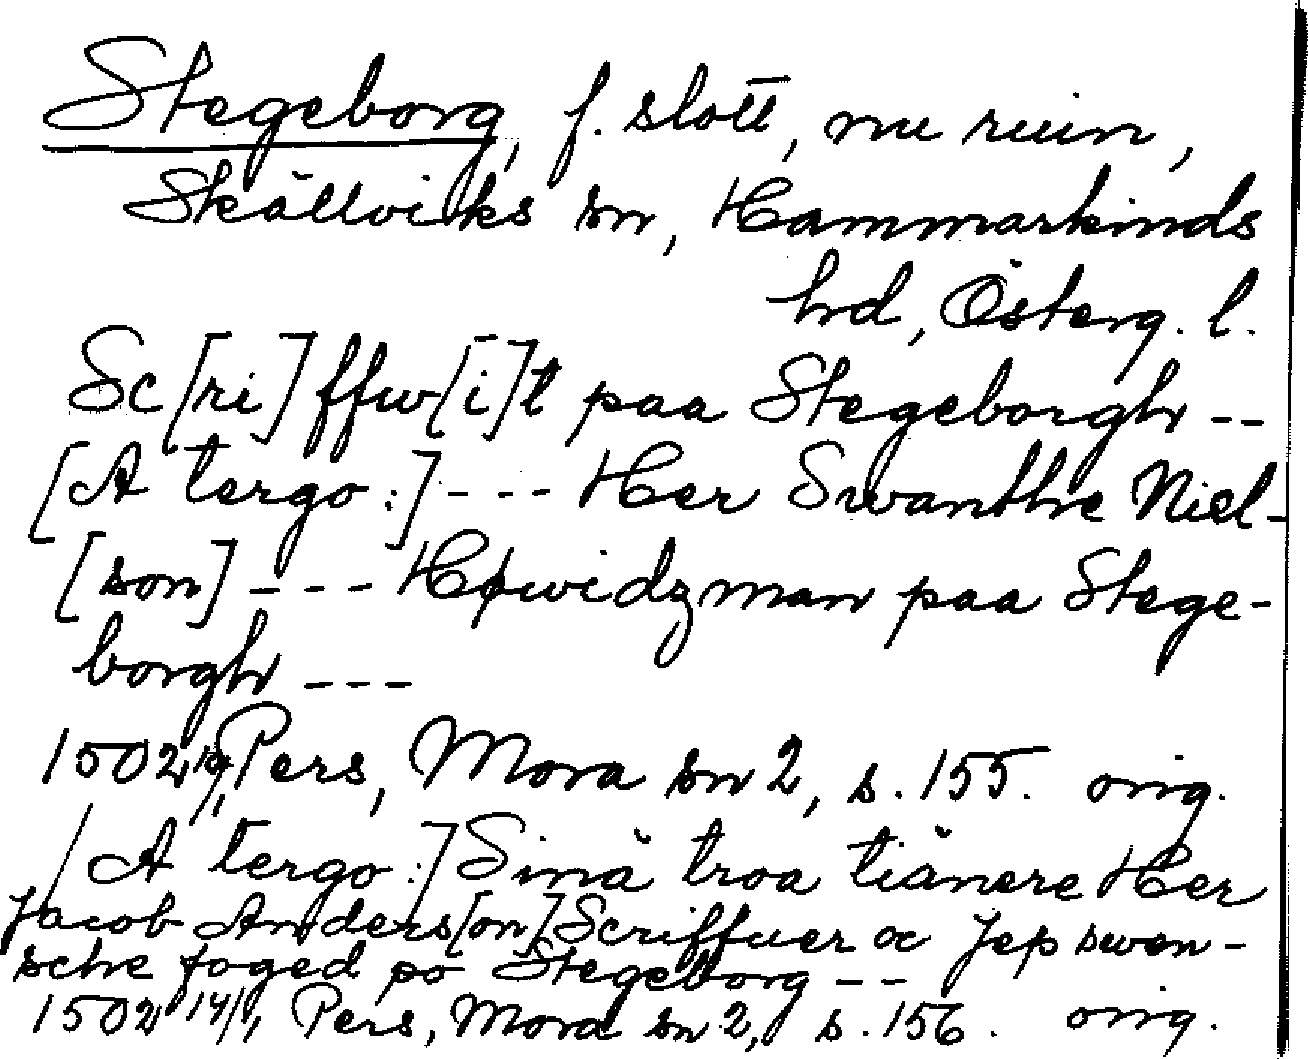 Stegeborg, f. slott, nu ruin,
Skällviks sn, Hammarkinds
hrd, Österg. l.
Sc[ri]ffw[i]t paa Stegeborgh --
[A tergo:] --- Her Swanthe Niel-
[son] --- Høwidzman paa Stege-
borgh ---
1502 Pers, Mora sn 2, s. 155. orig.
[A tergo:] Sinä troa tiänere Her
Jacob Anders[on] Scriffuer oc Jep swen-
sche foged po Stegeborg --
1502 14/1, Pers, Mora sn 2, s. 156. orig.